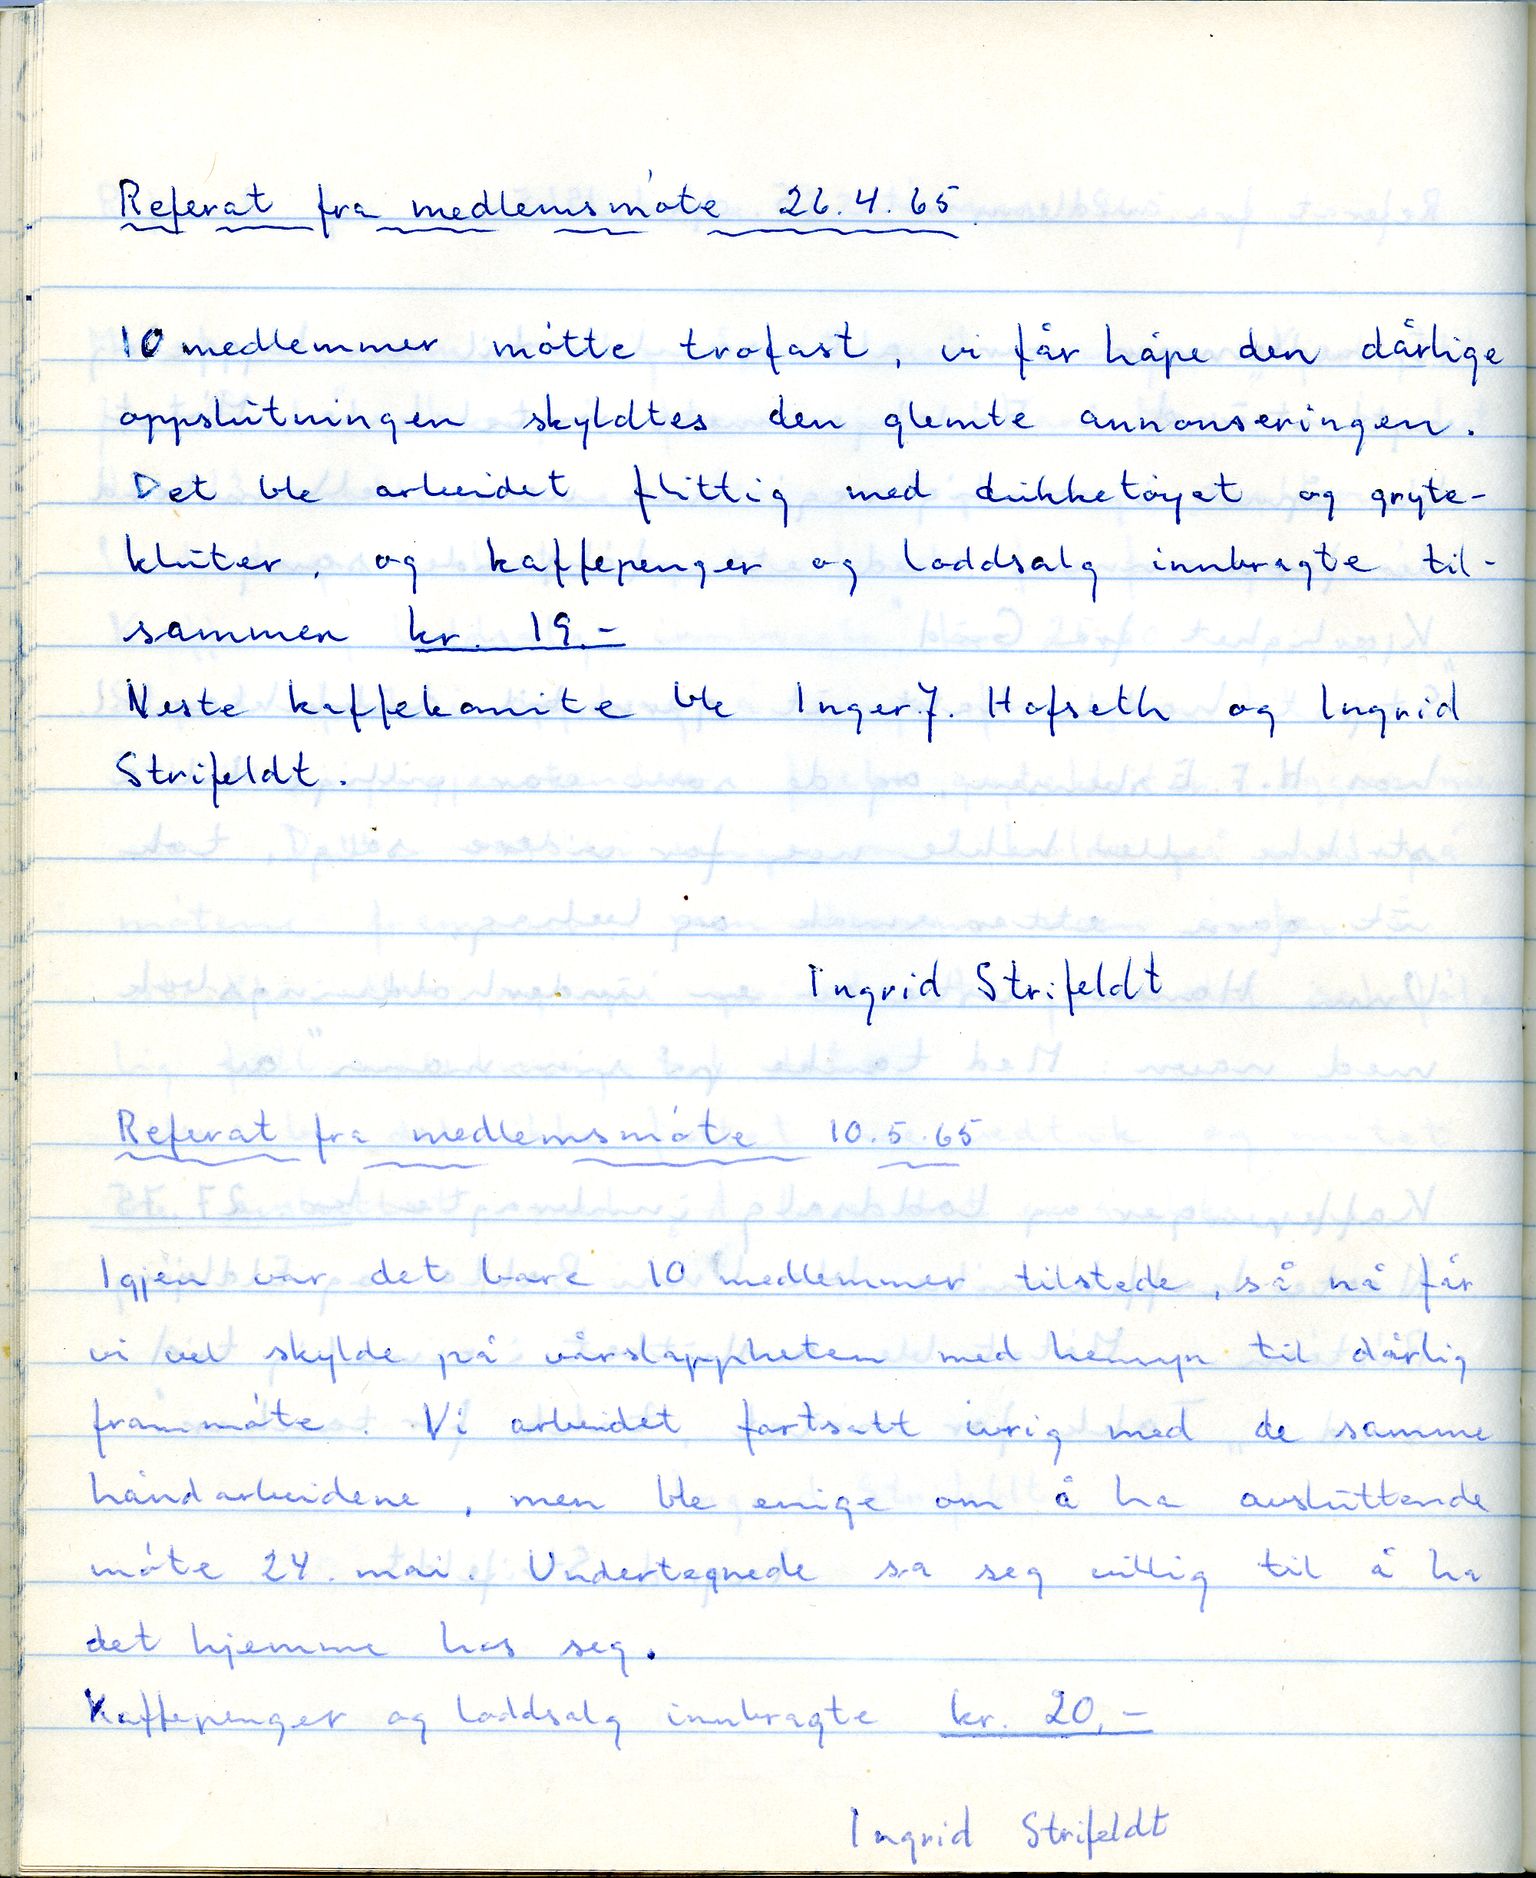 Referat fra medlemsmøte 26.4.65.
10 medlemmer møtte trofast, vi får håpe den dårlige
oppslutningen skyldtes den glemte annonseringen.
Det ble arbeidet flittig med dukketøyet og gryte-
kluter, og kaffepenger og loddsalg innbragte til-
sammen kr. 19.-
Neste kaffekomite ble Inger J. Hofseth og Ingrid
Strifeldt.
Ingrid Strifeldt
Referat fra medlemsmøte 10.5.65
Igjen var det bare 10 medlemmer tilstede, så nå får
vi vel skylde på vårslappheten med hensyn til dårlig
frammøte. Vi arbeidet fortsatt ivrig med de samme
håndarbeidene, men ble enige om å ha avsluttende
møte 24. mai. Undertegnede sa seg villig til å ha
det hjemme hos seg.
Kaffepenger og loddsalg innbragte kr. 20,-
Ingrid Strifeldt